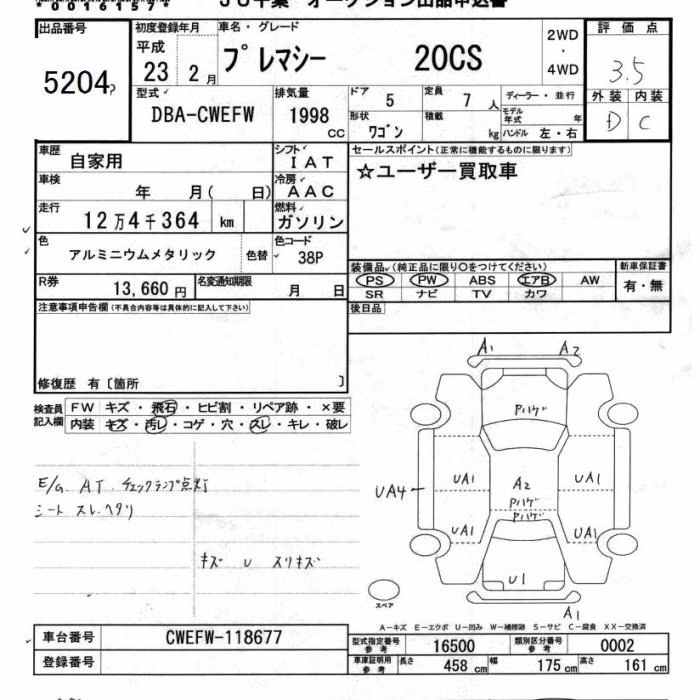 00161574 JU千葉 オークション出品申込書
出品番号 初度登録年月 車名・グレード 2WD 評価点
5204 平成 23 2月 プレマシー 20CS ・ 3.5
4WD
型式 排気量 ドア 5 定員 7人 ディーラー・並行 外装 内装
DBA-CWEFW 1998 cc 形状 ワゴン 積載 kg モデル年式 年 D C
ハンドル 左・右
車歴 自家用 シフト IAT セールスポイント(正常に機能するものに限ります)
車検 年 月( 日) 冷房 AAC ☆ユーザー買取車
走行 12万4千364 km 燃料 ガソリン
色 アルミニウムメタリック 色替 色コード 38P
装備品(純正品に限り○をつけてください) 新車保証書
R券 13,660円 名変通知期限 月 日 PS PW ABS エアB AW 有・無
SR ナビ TV カワ
注意事項申告欄(不具合内容等は具体的に記入して下さい) 後日品
修復歴 有〔箇所 〕
検査員記入欄 FW キズ・飛石・ヒビ割・リペア跡・×要
内装 キズ・汚レ・コゲ・穴・スレ・キレ・破レ
A1 A2
Pハゲ
E/G. AT. チェックランプ点灯
シート スレ.ヘタリ
UA1 A2 UA1
UA4 Pハゲ
Pハゲ
UA1 UA1
キズ U スリキズ
U1
スペア
A1
A-キズ E-エクボ U-凹み W-補修跡 S-サビ C-腐食 XX-交換済
車台番号 CWEFW-118677 型式指定番号 参考 16500 類別区分番号 参考 0002
登録番号 車庫証明用 参考 長さ 458cm 幅 175cm 高さ 161cm